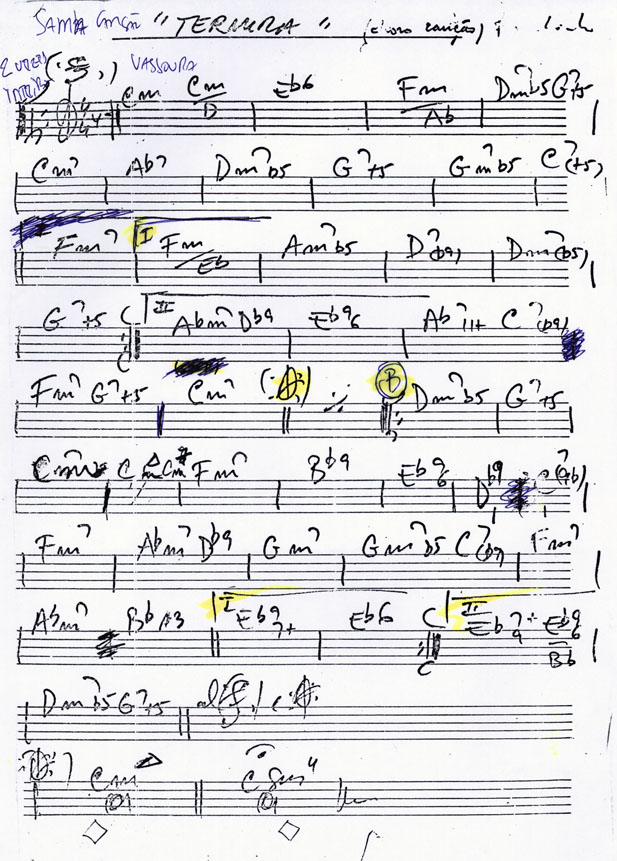 SAMBA CANÇÃO "TERNURA" (choro canção)
2 VEZES VASSOURA
INTEIRA
Cm Cm/D Eb6 Fm/Ab Dm7b5 G7+5
Cm7 Ab7 Dm7b5 G7+5 Gm7b5 C7(+5)
Fm7 I Fm/Eb Am7b5 D7(b9) Dm7(b5)
G7+5 II Abm7 Db9 Eb69 Ab7 11+ C7(b9)
Fm7 G7+5 Cm7 B Dm7b5 G7+5
Fm7 Bb9 Eb69
Fm7 Abm7 Db9 Gm7 Gm7b5 C7(b9) Fm7
Abm7 I Eb9 7+ Eb6 II Eb7+9 Eb69/Bb
Dm7b5 G7+5 al
Cm C sus4